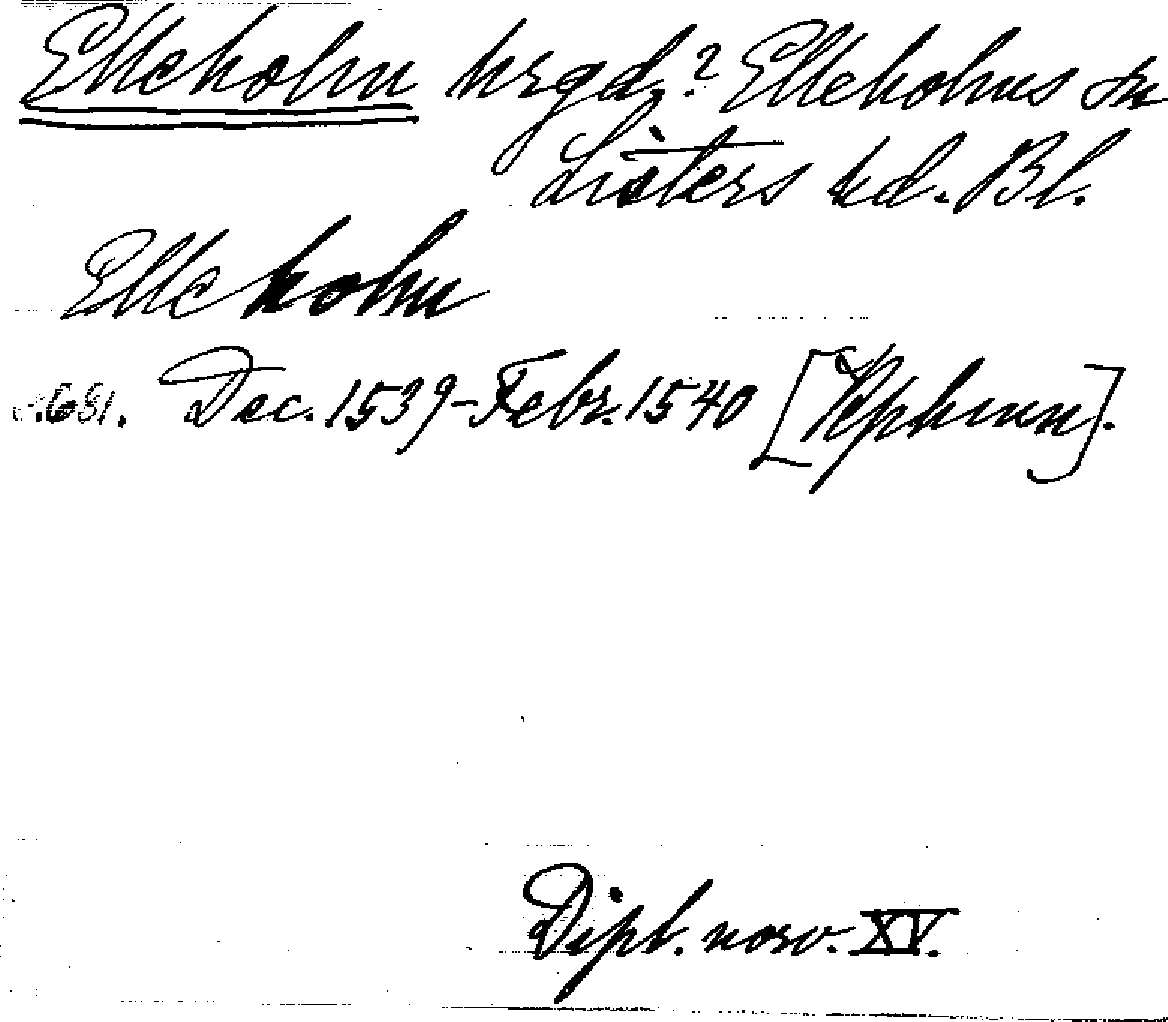 Elleholm hrgd? Elleholms sn
Listers hd. Bl.
Elleholm
s. 681. Dec. 1539-Febr. 1540 [Kphmn].
Dipl. norv. XV.